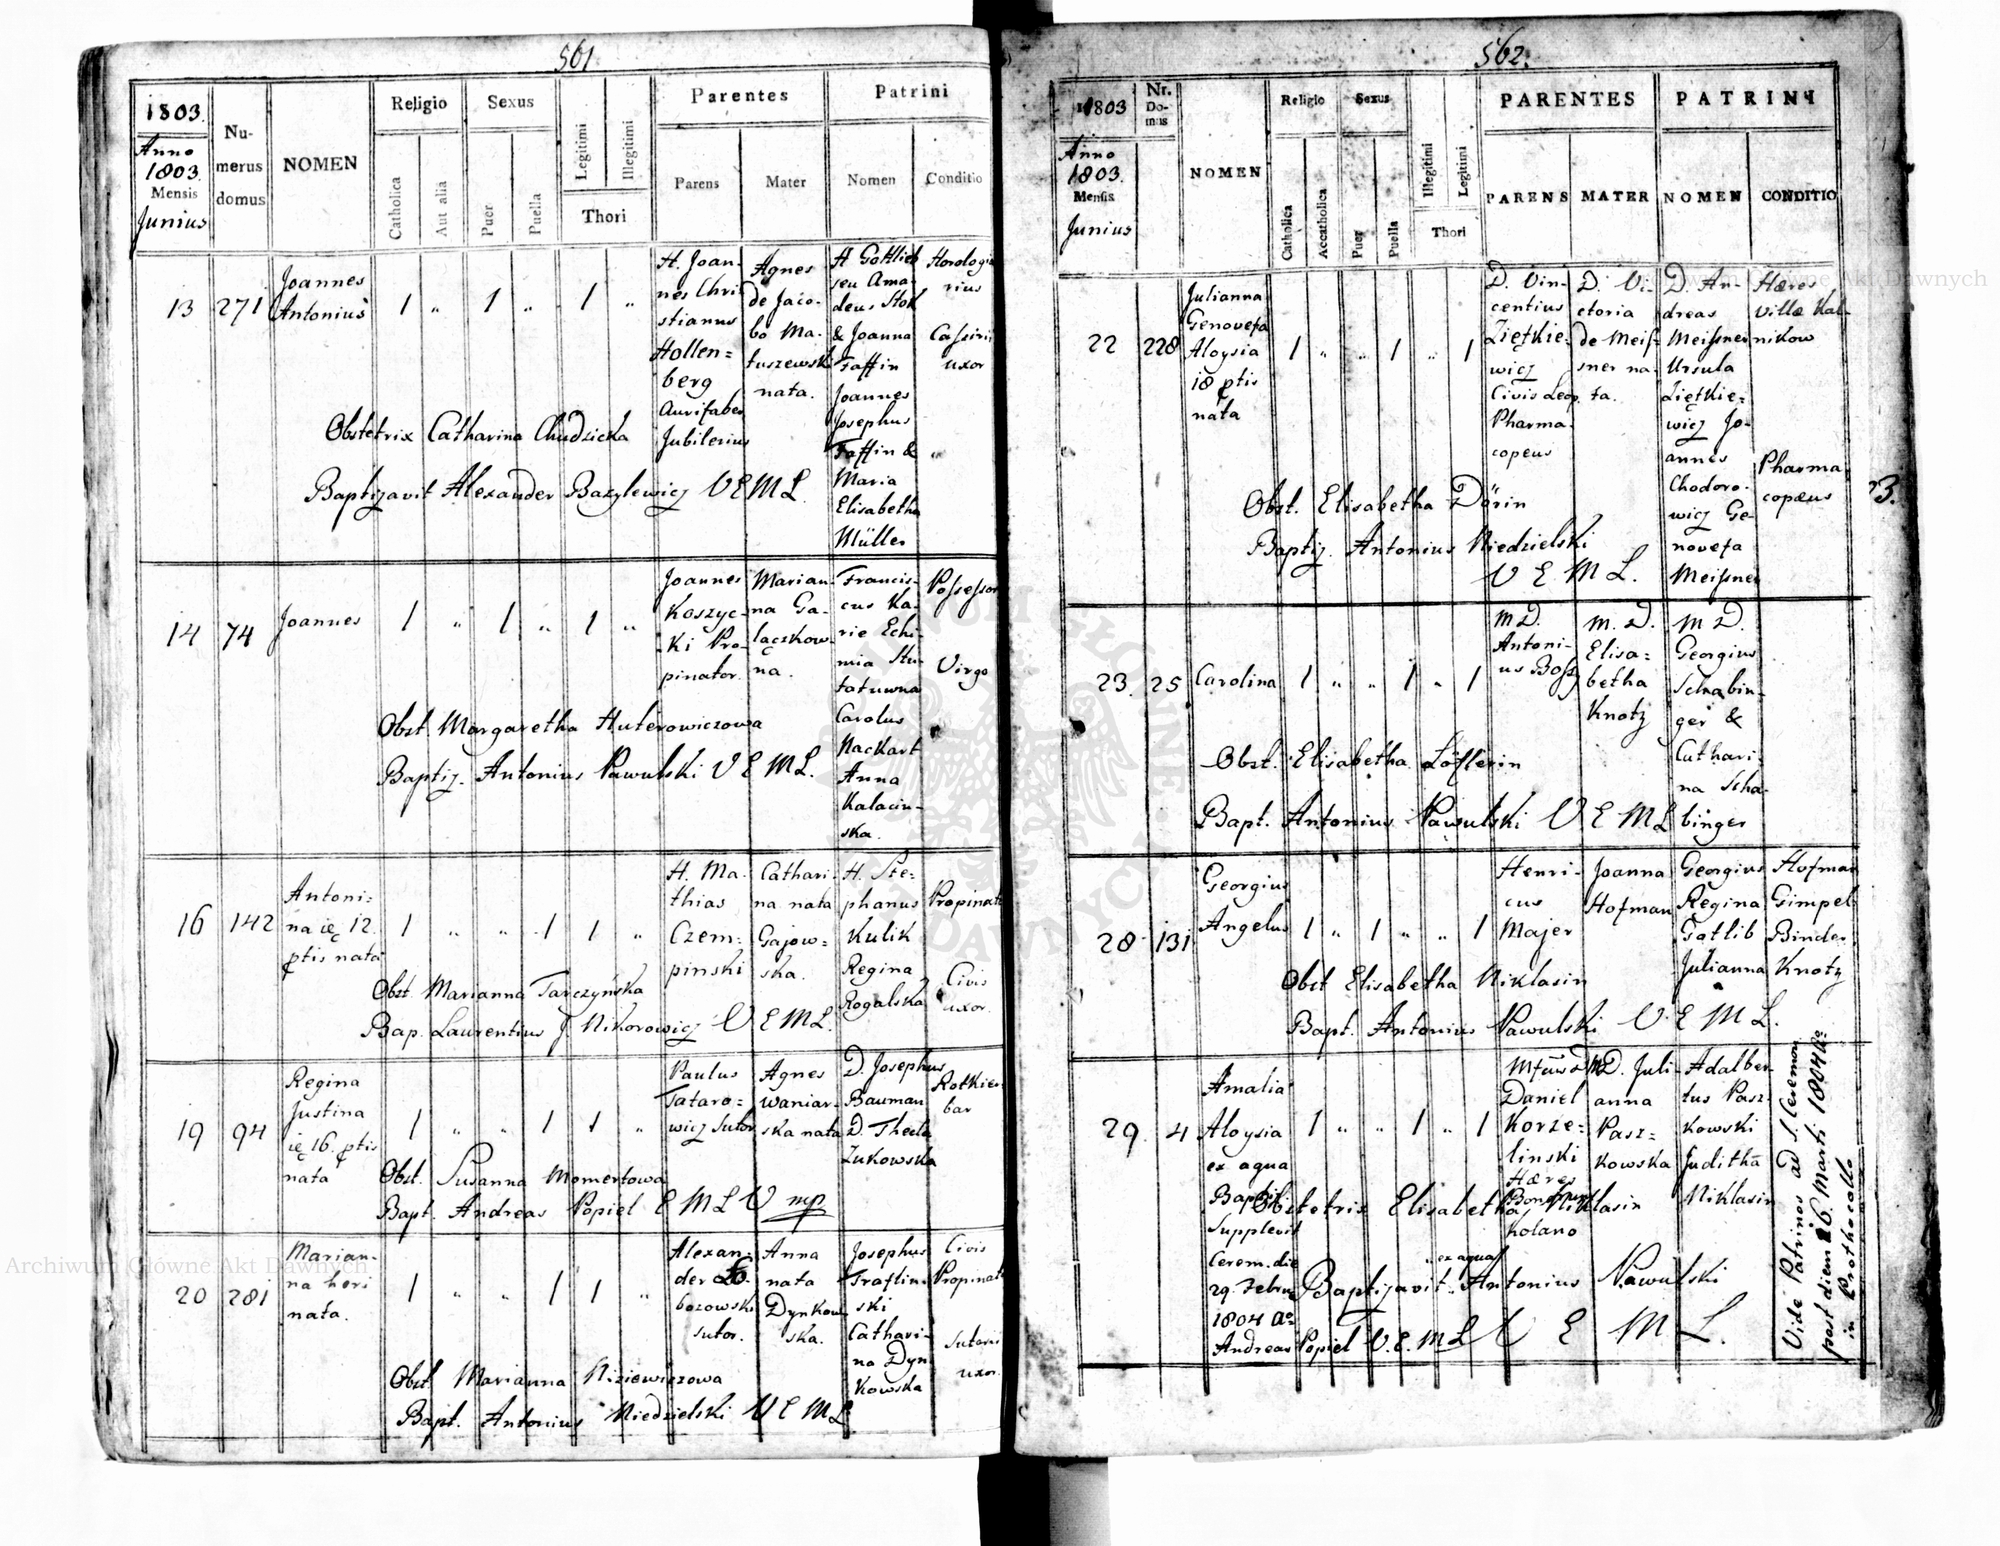 561
1803.
Anno
1803.
Mensis
Junius
Nu-
merus
domus
NOMEN
Religio
Catholica
Aut alia
Sexus
Puer
Puella
Legitimi
Illegitimi
Thori
Parentes
Parens
Mater
Patrini
Nomen
Conditio
13
271
Joannes
Antonius
1 " 1 " 1 "
H. Joan-
nes Chri-
stianus
Hollen=
berg
Aurifaber
Jubilerius
Agnes
de Jaco-
bo Ma-
tuszewski
nata.
H Gottlieb
seu Ama-
deus Stok
& Joanna
Taffin
Joannes
Josephus
Taffin &
Maria
Elisabetha
Müller
Horologia
rius
Cassirii
uxor
"
Obstetrix Catharina Chudzicka
Baptizavit Alexander Bazylewicz VEML.
14
74
Joannes
1 " 1 " 1 "
Joannes
Koszyc-
ki Pro-
pinator.
Marian-
na Ga-
lączkow-
na.
Francis-
cus Ka-
rie Echi-
mia Stu-
tatuwna
Carolus
Nackart
Anna
Kalacin-
ska.
Possessor
Virgo
Obst. Margaretha Huterowiczowa
Baptiz. Antonius Pawulski V E M L.
16
142
Antoni=
na ię 12.
ptis nata
1 " " 1 1 "
H. Ma-
thias
Czem=
pinski
Cathari-
na nata
Gajow=
ska.
H. Ste=
phanus
Kulik
Regina
Rogalska
Propinat
Civis
uxor.
Obst. Marianna Tarczyńska
Bap. Laurentius J. Nikorowicz V E M L.
19
94
Regina
Justina
ię 16. ptis
nata
1 " " 1 1 "
Paulus
Tataro=
wicz Sutor
Agnes
Waniar-
ska nata
D. Josephus
Bauman
D. Thecla
Zukowska
Rotkier
bar
Obst. Susanna Momertowa
Bapt. Andreas Popiel E M L V mp
20
281
Marian-
na heri
nata.
1 " " 1 1 "
Alexan-
der
bozowski
sutor.
Anna
nata
Dynkow
ska.
Josephus
Traflin-
ski
Cathari-
na Dyn
Kowska
Civis
Propinat
Sutoris
uxor.
Obst. Marianna Niziewiczowa
Bapt. Antonius Niedzielski V E M L
562.
1803
Anno
1803.
Mensis
Junius
Nr.
Do-
mus
NOMEN
Religio
Catholica
Accatholica
Sexus
Puer
Puella
Illegitimi
Legitimi
Thori
PARENTES
PARENS
MATER
PATRINI
NOMEN
CONDITIO
22
228
Julianna
Genovefa
Aloysia
18 ptis
nata
1 " " 1 " 1
D. Vin-
centius
Ziętkie-
wicz
Civis Leop.
Pharma-
copeus
D. Vi-
ctoria
de Meis-
sner na-
ta.
D. An-
dreas
Meissner
Ursula
Ziętkie=
wicz Jo-
annes
Chodoro-
wicz Ge-
novefa
Meissner
Hæres
Villæ Kal-
nikow
Pharma
copæus
Obst. Elisabetha Dörin
Baptiz. Antonius Niedzielski
V E M L.
3.
23.
25
Carolina
1 " " 1 " 1
M D.
Antoni-
us Bossz
M. D.
Elisa=
betha
Knotz
M D.
Georgius
Schabin-
ger &
Cathari-
na Scha-
binger
Obst. Elisabetha Löflerin
Bapt. Antonius Pawulski V E M L
28
131
Georgius
Angelus
1 " 1 " " 1
Henri-
cus
Majer
Joanna
Hofman
Georgius
Regina
Gotlib
Julianna
Hofman
Gimpel
Binder
Knotz
Obst Elisabetha Niklasin
Bapt. Antonius Pawulski V. E M L.
29
4
Amalia
Aloysia
ex aqua
Baptiz.
Supplevit
Cerem. die
29. Febru
1804 Ao
Andreas Popiel V. E. M L
1 " " 1 " 1
Daniel
Korze-
linski
Hæres
Kolano
MD. Juli-
anna
Pasz=
kowska
Adalber-
tus Pasz-
kowski
Juditha
Niklasin
Obstetrix Elisabetha Niklasin
ex aqua
Baptizavit Antonius Pawulski
V E M L.
Vide Patrinos ad S. Ceremon
post diem 26. Marti 1804to
in Prothocollo
Archiwum Główne Akt Dawnych
Archiwum Główne Akt Dawnych
ARCHIWUM GŁÓWNE AKT DAWNYCH